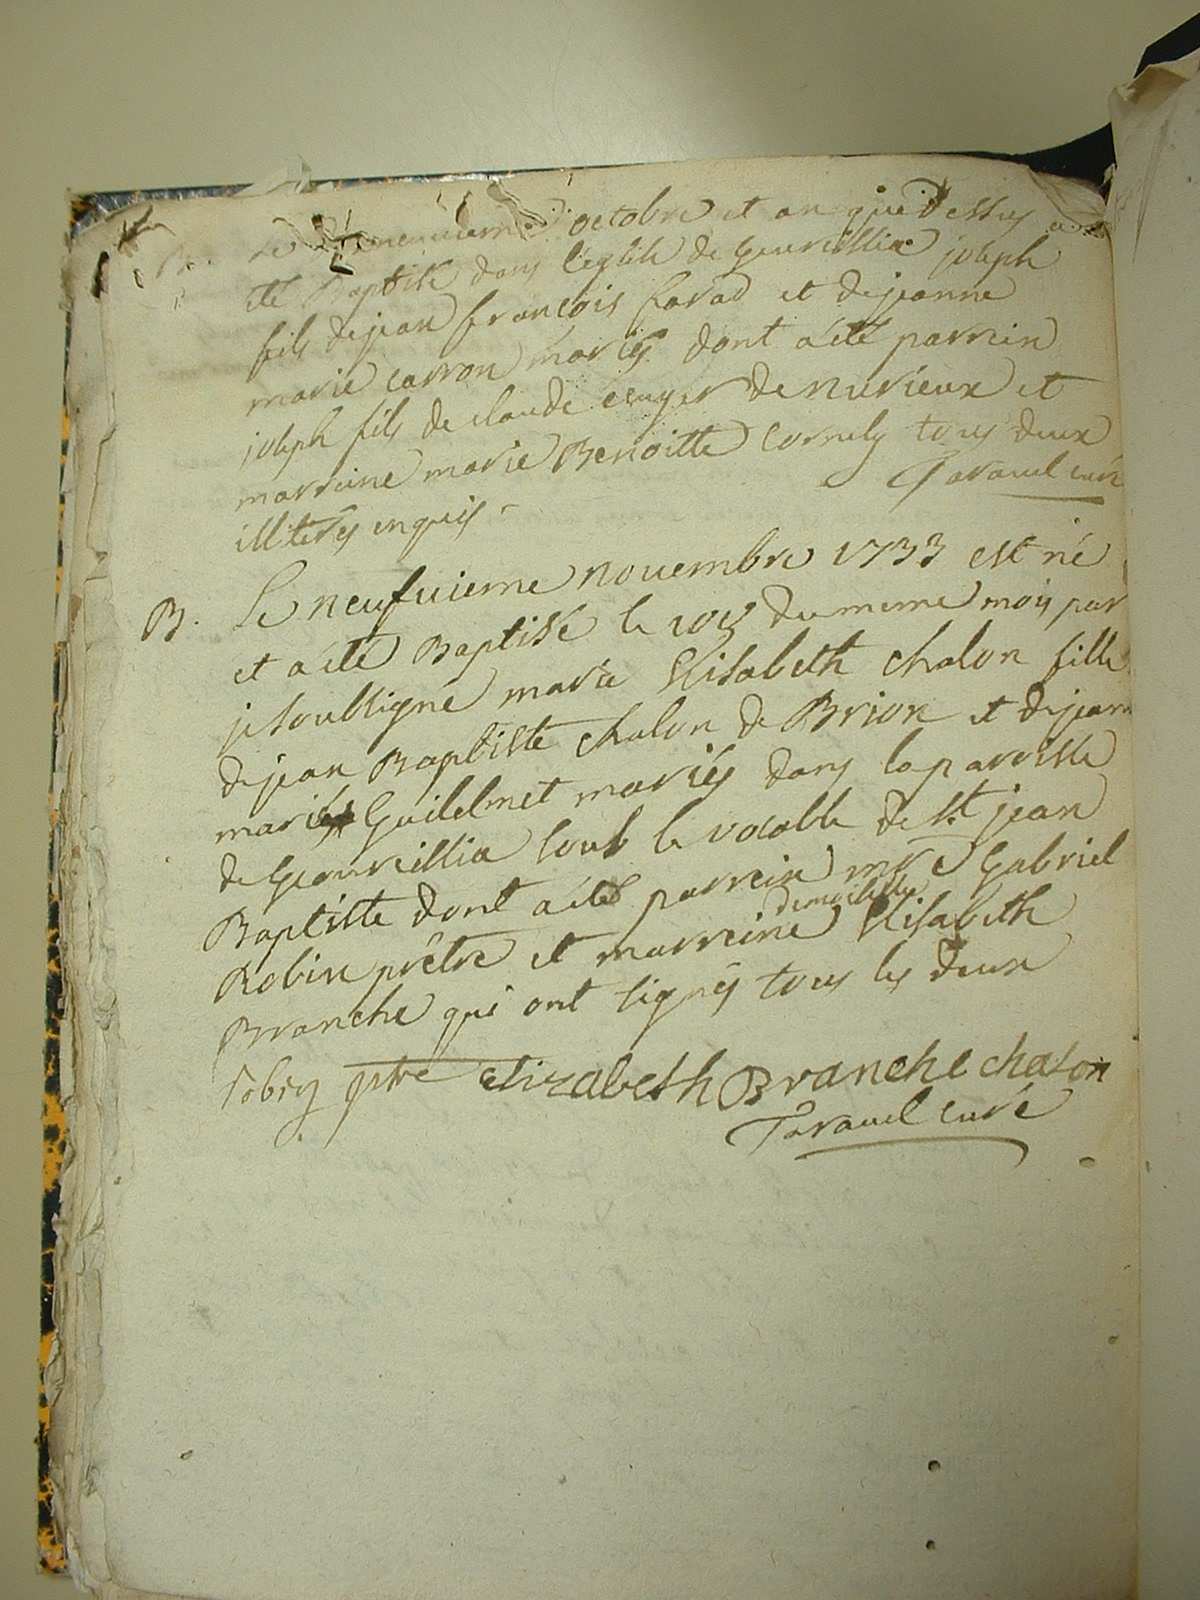 B. Le octobre et an que dessus a
été Baptisé dans l'eglise de Geovreissia joseph
fils de jean françois favad et de jeanne
marie carron mariés dont a été parrein
joseph fils de claude de nurieux et
marreine marie Benoitte Cornely tous deux
illiterés enquis Taravel curé
B. Le neufuieme novembre 1733 est né
et a été Baptisé le du meme mois par
je soubsigné marie Elisabeth chalon fille
de jean Baptiste chalon de Brion et de jeanne
marie Guilelmet mariés dans la paroisse
de Geovreissia soub le vocable de st jean
Baptiste dont a été parrein mre Gabriel
Robin prêtre et marreine demoiselle Elisabeth
Branche qui ont signés tous les deux
robin ptre Elizabeth Branche chalon
Taravel curé